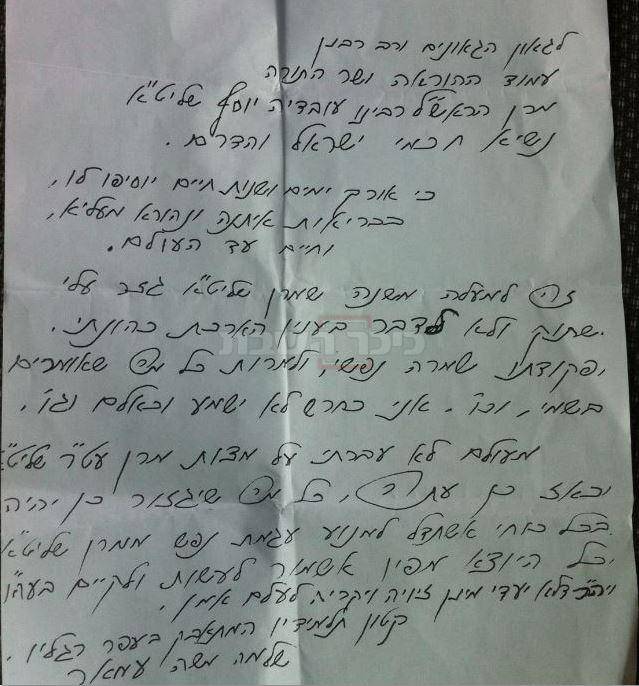 לגאון הגאונים ורב רבנן
עמוד ההוראה ושר התורה
מרן הראש"ל רבינו עובדיה יוסף שליט"א
נשיא חכמי ישראל והדרם.
כי אורך ימים ושנות חיים יוסיפו לו,
בבריאות איתנה ונהורא מעליא,
וחיים עד העולם.
זה למעלה משנה שמרן שליט"א גזר עלי
שתוק ולא לדבר בענין הארכת כהונתי.
ופקודתו שמרה נפשי ולמרות כל מה שאומרים
בשמי, וכו'. אני כחרש לא ישמע וכאלם וגו'.
מעולם לא עברתי על מצות מרן עט"ר שליט"א
וכאז כן עתה, כל מה שיגזור כן יהיה
בכל כוחי אשתדל למנוע עגמת נפש ממרן שליט"א
וכל היוצא מפיו אשמור לעשות ולקיים בעה"ו
ויה"ר דלא יעדי מינן זיויה ויקריה לעלם אמן.
קטון תלמידיו המתאבק בעפר רגליו.
שלמה משה עמאר
כיכר השבת